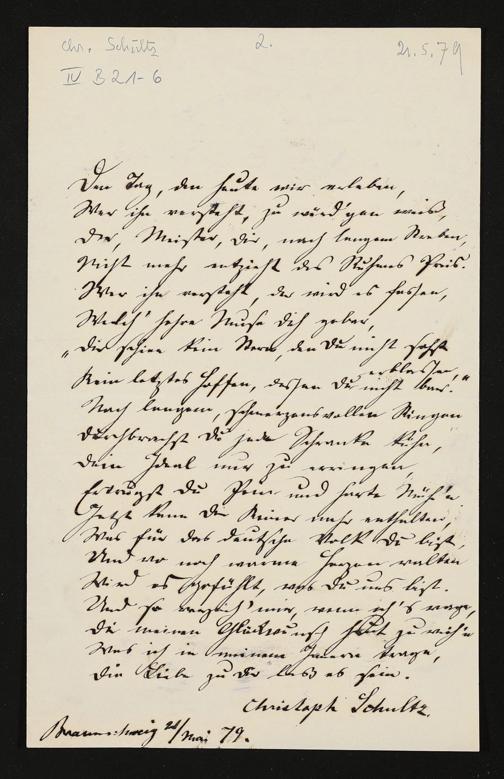 Chr. Schultz 2. 21.5.79
IV B 21-6
Den Tag, den heute wir erleben,
Wer ihn versteht, zu würd'gen weiß,
Dir, Meister, Dir, nach langem Streben,
Nicht mehr entzieht des Ruhmes Preis.
Wer ihn versteht, der wird es fassen,
Welch' hehre Muse Dich gebar,
„Dir schien kein Stern, den Du nicht sahst
erblassen,
Kein letztes Hoffen, dessen Du nicht bar."
Nach langem, schmerzensvollen Ringen
Durchbrachst Du jede Schranke kühn,
Dein Ideal nur zu erringen,
Ertrugst Du Pein und harte Müh'n
Jetzt kann Dir Keiner mehr enthalten,
Was für das deutsche Volk Du bist,
Und wo noch warme Herzen walten
Wird es gefühlt, was Du uns bist.
Und so verzeih' mir, wenn ich's wage,
Dir meinen Glückwunsch heut zu weih'n
Was ich in meinem Innern trage,
Die Liebe zu Dir laß es sein.
Christoph Schultz.
Braunschweig 21/Mai 79.